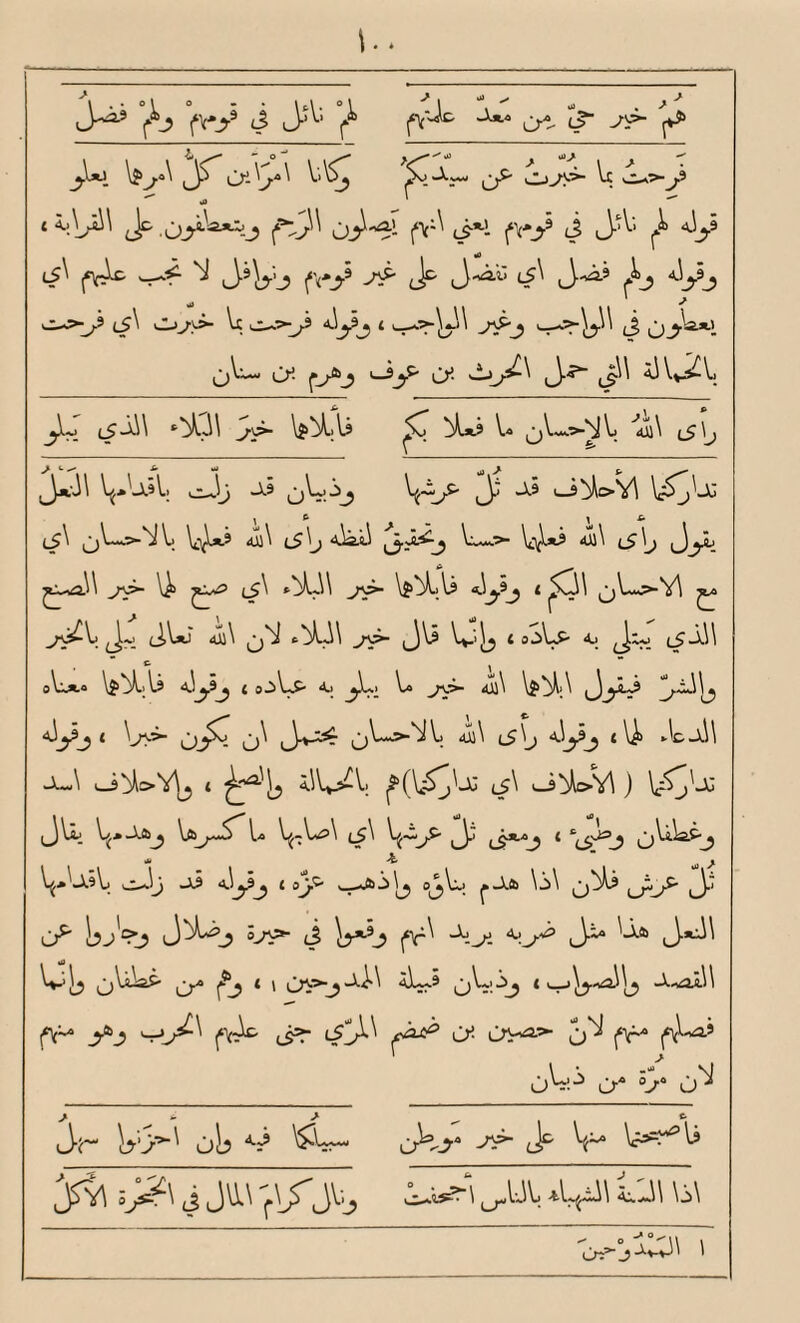 ١٠٠
هُمُ خير حيّ من معدّ علمتهم لهم نائل في قومهم ولهم فضل
فرحت بما خبرت عن سيديكم وكانا امرأين كل امرهما يعلو
قوله لهم نائل في قومهم يعني انهم يصلون الرحم ويتعطفون على القرابة ،
وقوله ولهم فضل اي تفضل على غير قومهم ونوافل لا تجب عليهم اي
يعطون في الواجب وغير الواجب ، وقوله فرحت بما خبرت اي فرحت
بالحمالة التي حمل الحارث بن عوف وهرم بن سنان
رأى الله بالاحسان ما فعلا بكم فابلاهما خير البلاء الذي يبلو
تداركتما الاحلاف قد ثلّ عرشها وذبيان قد زلت باقدامها النعل
يقول رأى الله فعلهما حسنا لفظه رأى الله فعلهما بالاحسان اي
مع الاحسان اليكم ، وقوله فابلاهما خير البلاء اي صنع لهما خير الصنيع
الذي يبتلي به عباده ، وانما قال خير البلاء لان الله تعالى يبلي بالخير
والشر فيقول ابلاهما الله خير ما يبلو به عباده ، وقوله فابلاهما معناه
الدعاء لهما ، وقوله رأى الله بالاحسان يحتمل ان يكون خبرا ، وقوله
تداركتما (الاحلاف اي تداركتما)هم بالحمالة والصلح ، والاحلاف اسد
وغطفان وطيّء ، ومعنى ثلّ عرشها اي اصابها ما كسرها وهدمها يقال
ثلّ عرش فلان اذا هدم بناؤه واذهب عزه ، وقوله قد زلت باقدامها
النعل هذا مثل ضربه يريد انهم وقعوا في حيرة وضلال وجازوا عن
القصد والصواب ، وذبيان قبيلة الممدوحين ١ ، وهم من غطفان وانما
فصلهم منهم لانّ حصين بن ضمضم المرّي جنى عليهم الحرب وهو منهم
لان مرّة من ذبيان
فاصبحتما منها على خير موطن سبيلكما فيه وان احزنوا سهل
اذا السنة الشهباء بالناس اجحفت ونال كرام المال في الجحرة الاكل
١ الممدوحَيْنِ